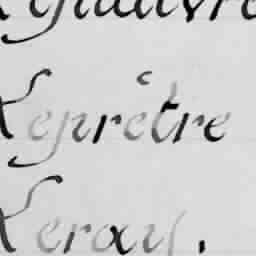 Leprêtre
Leray.